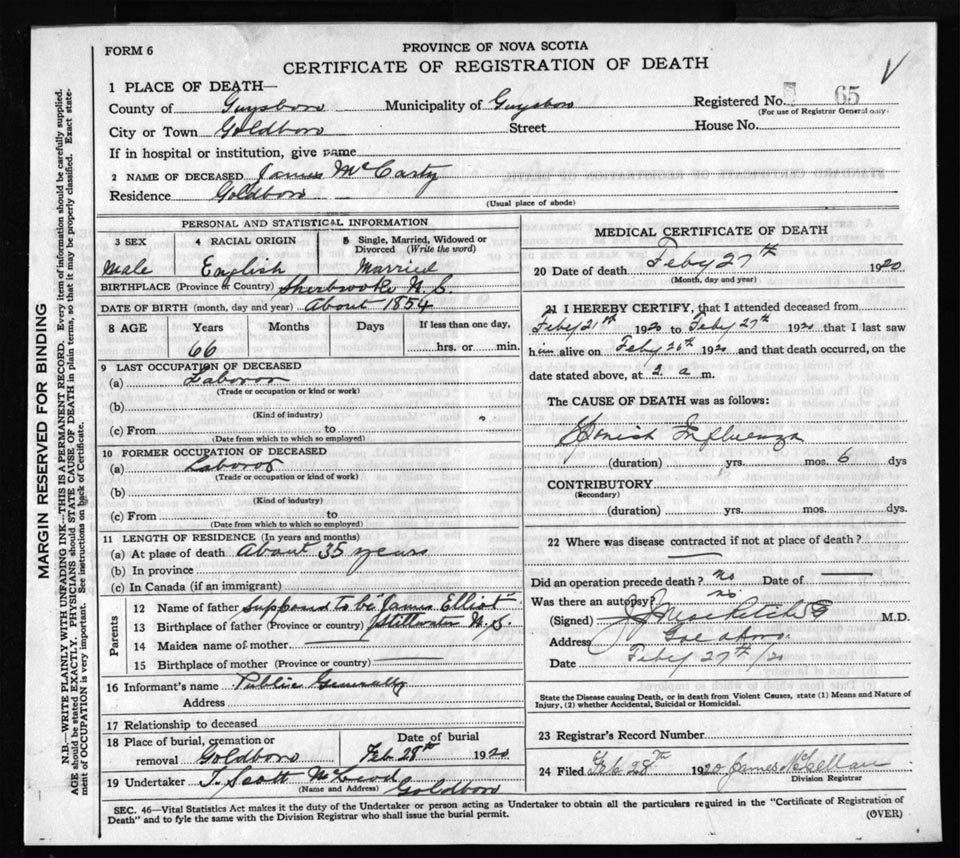 FORM 6
PROVINCE OF NOVA SCOTIA
CERTIFICATE OF REGISTRATION OF DEATH
V
1 PLACE OF DEATH—
County of Guysboro Municipality of Guysboro Registered No. 65
(For use of Registrar General only)
City or Town Goldboro Street House No.
If in hospital or institution, give name
2 NAME OF DECEASED James McCarty
Residence Goldboro
(Usual place of abode)
PERSONAL AND STATISTICAL INFORMATION
3 SEX 4 RACIAL ORIGIN 5 Single, Married, Widowed or Divorced (Write the word)
Male English Married
BIRTHPLACE (Province or Country) Sherbrooke N.S.
DATE OF BIRTH (month, day and year) About 1854
8 AGE Years Months Days If less than one day,
66 hrs. or min.
9 LAST OCCUPATION OF DECEASED
(a) Laboror
(Trade or occupation or kind of work)
(b)
(Kind of industry)
(c) From to
(Date from which to which so employed)
10 FORMER OCCUPATION OF DECEASED
(a) Laboror
(Trade or occupation or kind of work)
(b)
(Kind of industry)
(c) From to
(Date from which to which so employed)
11 LENGTH OF RESIDENCE (In years and months)
(a) At place of death About 35 years
(b) In province
(c) In Canada (if an immigrant)
Parents
12 Name of father Supposed to be James Elliot
13 Birthplace of father (Province or country) Stillwater N.S.
14 Maiden name of mother
15 Birthplace of mother (Province or country)
16 Informant's name Public Generally
Address
17 Relationship to deceased
18 Place of burial, cremation or removal Goldboro Date of burial Feb 28th 1920
19 Undertaker T. Scott McLeod
(Name and Address) Goldboro
MEDICAL CERTIFICATE OF DEATH
20 Date of death Feby 27th 1920
(Month, day and year)
21 I HEREBY CERTIFY, that I attended deceased from
Feby 21st 1920 to Feby 27th 1920 that I last saw
him alive on Feby 26th 1920 and that death occurred, on the
date stated above, at 2. a m.
The CAUSE OF DEATH was as follows:
Spanish Influenza
(duration) yrs. mos. 6 dys
CONTRIBUTORY
(Secondary)
(duration) yrs. mos. dys.
22 Where was disease contracted if not at place of death?
Did an operation precede death? no Date of
Was there an autopsy? no
(Signed) M.D.
Address
Date Feby 27th/20
State the Disease causing Death, or in death from Violent Causes, state (1) Means and Nature of
Injury, (2) whether Accidental, Suicidal or Homicidal.
23 Registrar's Record Number
24 Filed Feb 28th 1920 James McLellan
Division Registrar
SEC. 46—Vital Statistics Act makes it the duty of the Undertaker or person acting as Undertaker to obtain all the particulars required in the "Certificate of Registration of
Death" and to fyle the same with the Division Registrar who shall issue the burial permit.
(OVER)
MARGIN RESERVED FOR BINDING
N.B.—WRITE PLAINLY WITH UNFADING INK—THIS IS A PERMANENT RECORD. Every item of information should be carefully supplied.
AGE should be stated EXACTLY. PHYSICIANS should STATE CAUSE OF DEATH in plain terms, so that it may be properly classified. Exact statement of OCCUPATION is very important. See instructions on back of Certificate.